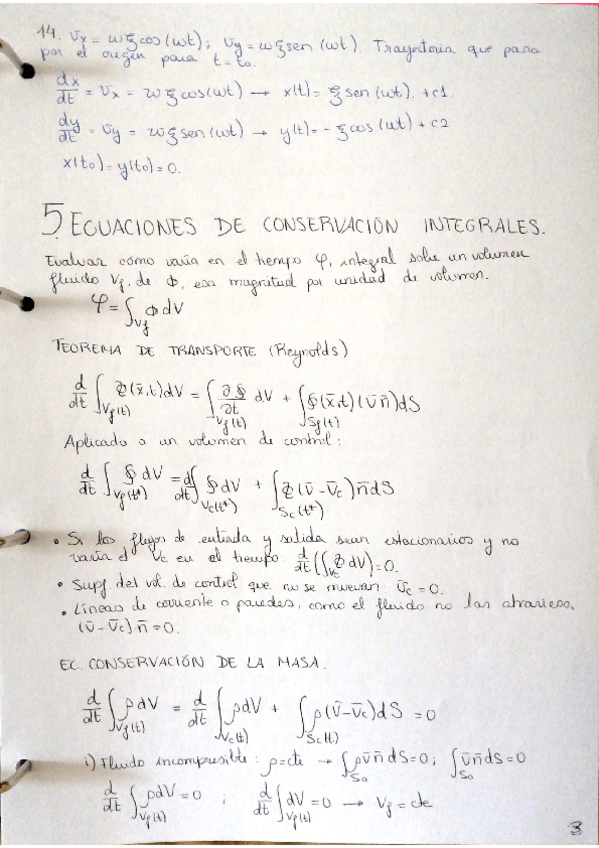 14. Vx = ωξcos(ωt); Vy = ωξsen(ωt). Trayectoria que pasa
por el origen para t=t₀.
dx/dt = Vx = ωξcos(ωt) → x(t) = ξsen(ωt). +c1.
dy/dt = Vy = ωξsen(ωt) → y(t) = -ξcos(ωt) + c2
x(t₀) = y(t₀) = 0.
5. ECUACIONES DE CONSERVACIÓN INTEGRALES.
Evaluar cómo varía en el tiempo φ, integral sobre un volumen
fluido Vf, de ϕ, esa magnitud por unidad de volumen.
φ = ∫_Vf ϕ dV
TEOREMA DE TRANSPORTE (Reynolds)
d/dt ∫_Vf(t) ϕ(x̄,t)dV = ∫_Vf(t) ∂ϕ/∂t dV + ∫_Sf(t) ϕ(x̄,t)(v̄n̄)dS
Aplicado a un volumen de control:
d/dt ∫_Vf(t*) ϕ dV = d/dt ∫_Vc(t*) ϕ dV + ∫_Sc(t*) ϕ(v̄-v̄c)n̄dS
• Si los flujos de entrada y salida sean estacionarios y no
varía el Vc en el tiempo: d/dt(∫_Vc ϕ dV) = 0.
• Supf. del vol. de control que no se muevan: v̄c = 0.
• Líneas de corriente o paredes, como el fluido no las atraviesa,
(v̄-v̄c)n̄ = 0.
EC. CONSERVACIÓN DE LA MASA.
d/dt ∫_Vf(t) ρdV = d/dt ∫_Vc(t) ρdV + ∫_Sc(t) ρ(v̄-v̄c)dS = 0
i) Fluido incompresible: ρ=cte → ∫_S₀ ρv̄n̄dS=0; ∫_S₀ v̄n̄dS=0
d/dt ∫_Vf(t) ρdV = 0 ; d/dt ∫_Vf(t) dV = 0 → Vf = cte
3